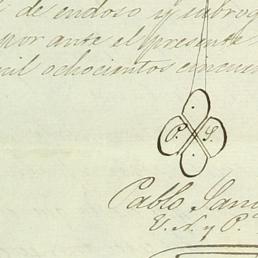 de endoso y subrog
por ante el presente
mil ochocientos cincuen
P. S.
Pablo San
E. N. y P.